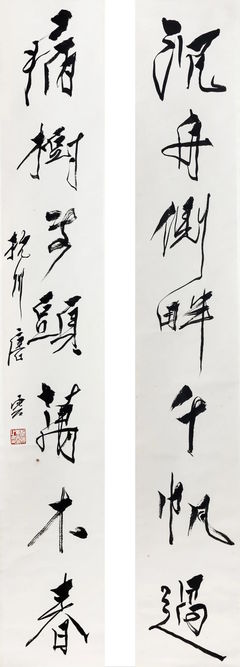 沉舟側畔千帆過
病樹前頭萬木春
杭州唐雲